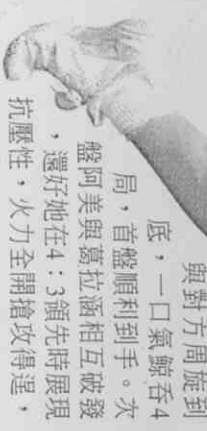 與對方周旋到
底，一口氣鯨吞4
局，首盤順利到手。次
盤阿美與葛拉涵相互破發
，還好她在4：3領先時展現
抗壓性，火力全開搶攻得逞，